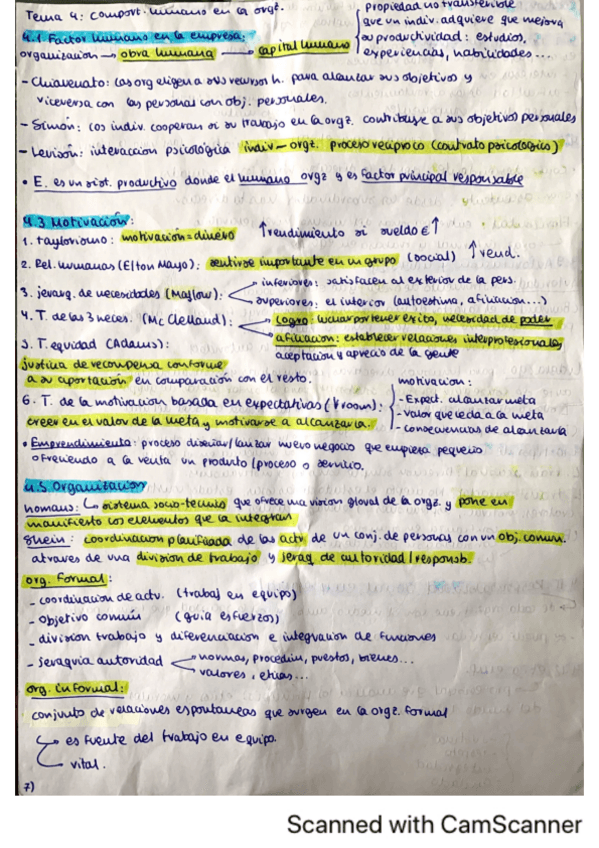 Tema 4: Comport. humano en la orgz.
propiedad no transferible
que un indiv. adquiere que mejora
su productividad: estudios,
experiencias, habilidades...
4.1 Factor humano en la empresa:
organizacion → obra humana → capital humano
- Chiavenato: las org eligen a sus recursos h. para alcanzar sus objetivos y
viceversa con las personas con obj. personales.
- Simón: los indiv. cooperan si su trabajo en la orgz. contribuye a sus objetivos personales
- Levison: interaccion psicológica indiv - orgz. proceso reciproco (contrato psicologico)
• E. es un sist. productivo donde el humano orgz y es factor principal responsable
4.3 Motivación:
1. taylorismo: motivación = dinero ↑rendimiento si sueldo € ↑
2. Rel. humanas (Elton Mayo): sentirse importante en un grupo (social) ↑rend.
3. jerarq. de necesidades (Maslow):
inferiores: satisfacen al exterior de la pers.
superiores: el interior (autoestima, afiliacion...)
4. T. de las 3 neces. (Mc Clelland):
logro: luchar por tener exito, necesidad de poder
afiliación: establecer relaciones interprofesionales,
aceptación y aprecio de la gente
5. T. equidad (Adams):
justicia de recompensa conforme
a su aportación en comparación con el resto.
6. T. de la motivacion basada en expectativas (Vroom):
creer en el valor de la meta y motivarse a alcanzarla.
motivacion:
- Expect. alcanzar meta
- valor que le da a la meta
- consecuencias de alcanzarla
• Emprendimiento: proceso diseñar/lanzar nuevo negocio que empieza pequeño
ofreciendo a la venta un producto/proceso o servicio.
4.5 Organizacion
homans: sistema socio-tecnico que ofrece una vision global de la orgz. y pone en
manifiesto los elementos que la integran
Shein: coordinacion planificada de las actv de un conj. de personas con un obj. comun.
atraves de una division de trabajo y jeraq. de autoridad/responsb.
org. formal:
- coordinacion de actv. (trabaj en equipo)
- objetivo común (guia esfuerzos)
- division trabajo y diferenciacion e integracion de funciones
- jeraquia autoridad
normas, procedim, puestos, bienes...
valores, eticas...
org. informal:
conjunto de relaciones espontaneas que surgen en la orgz. formal
es fuente del trabajo en equipo.
vital.
7)
Scanned with CamScanner